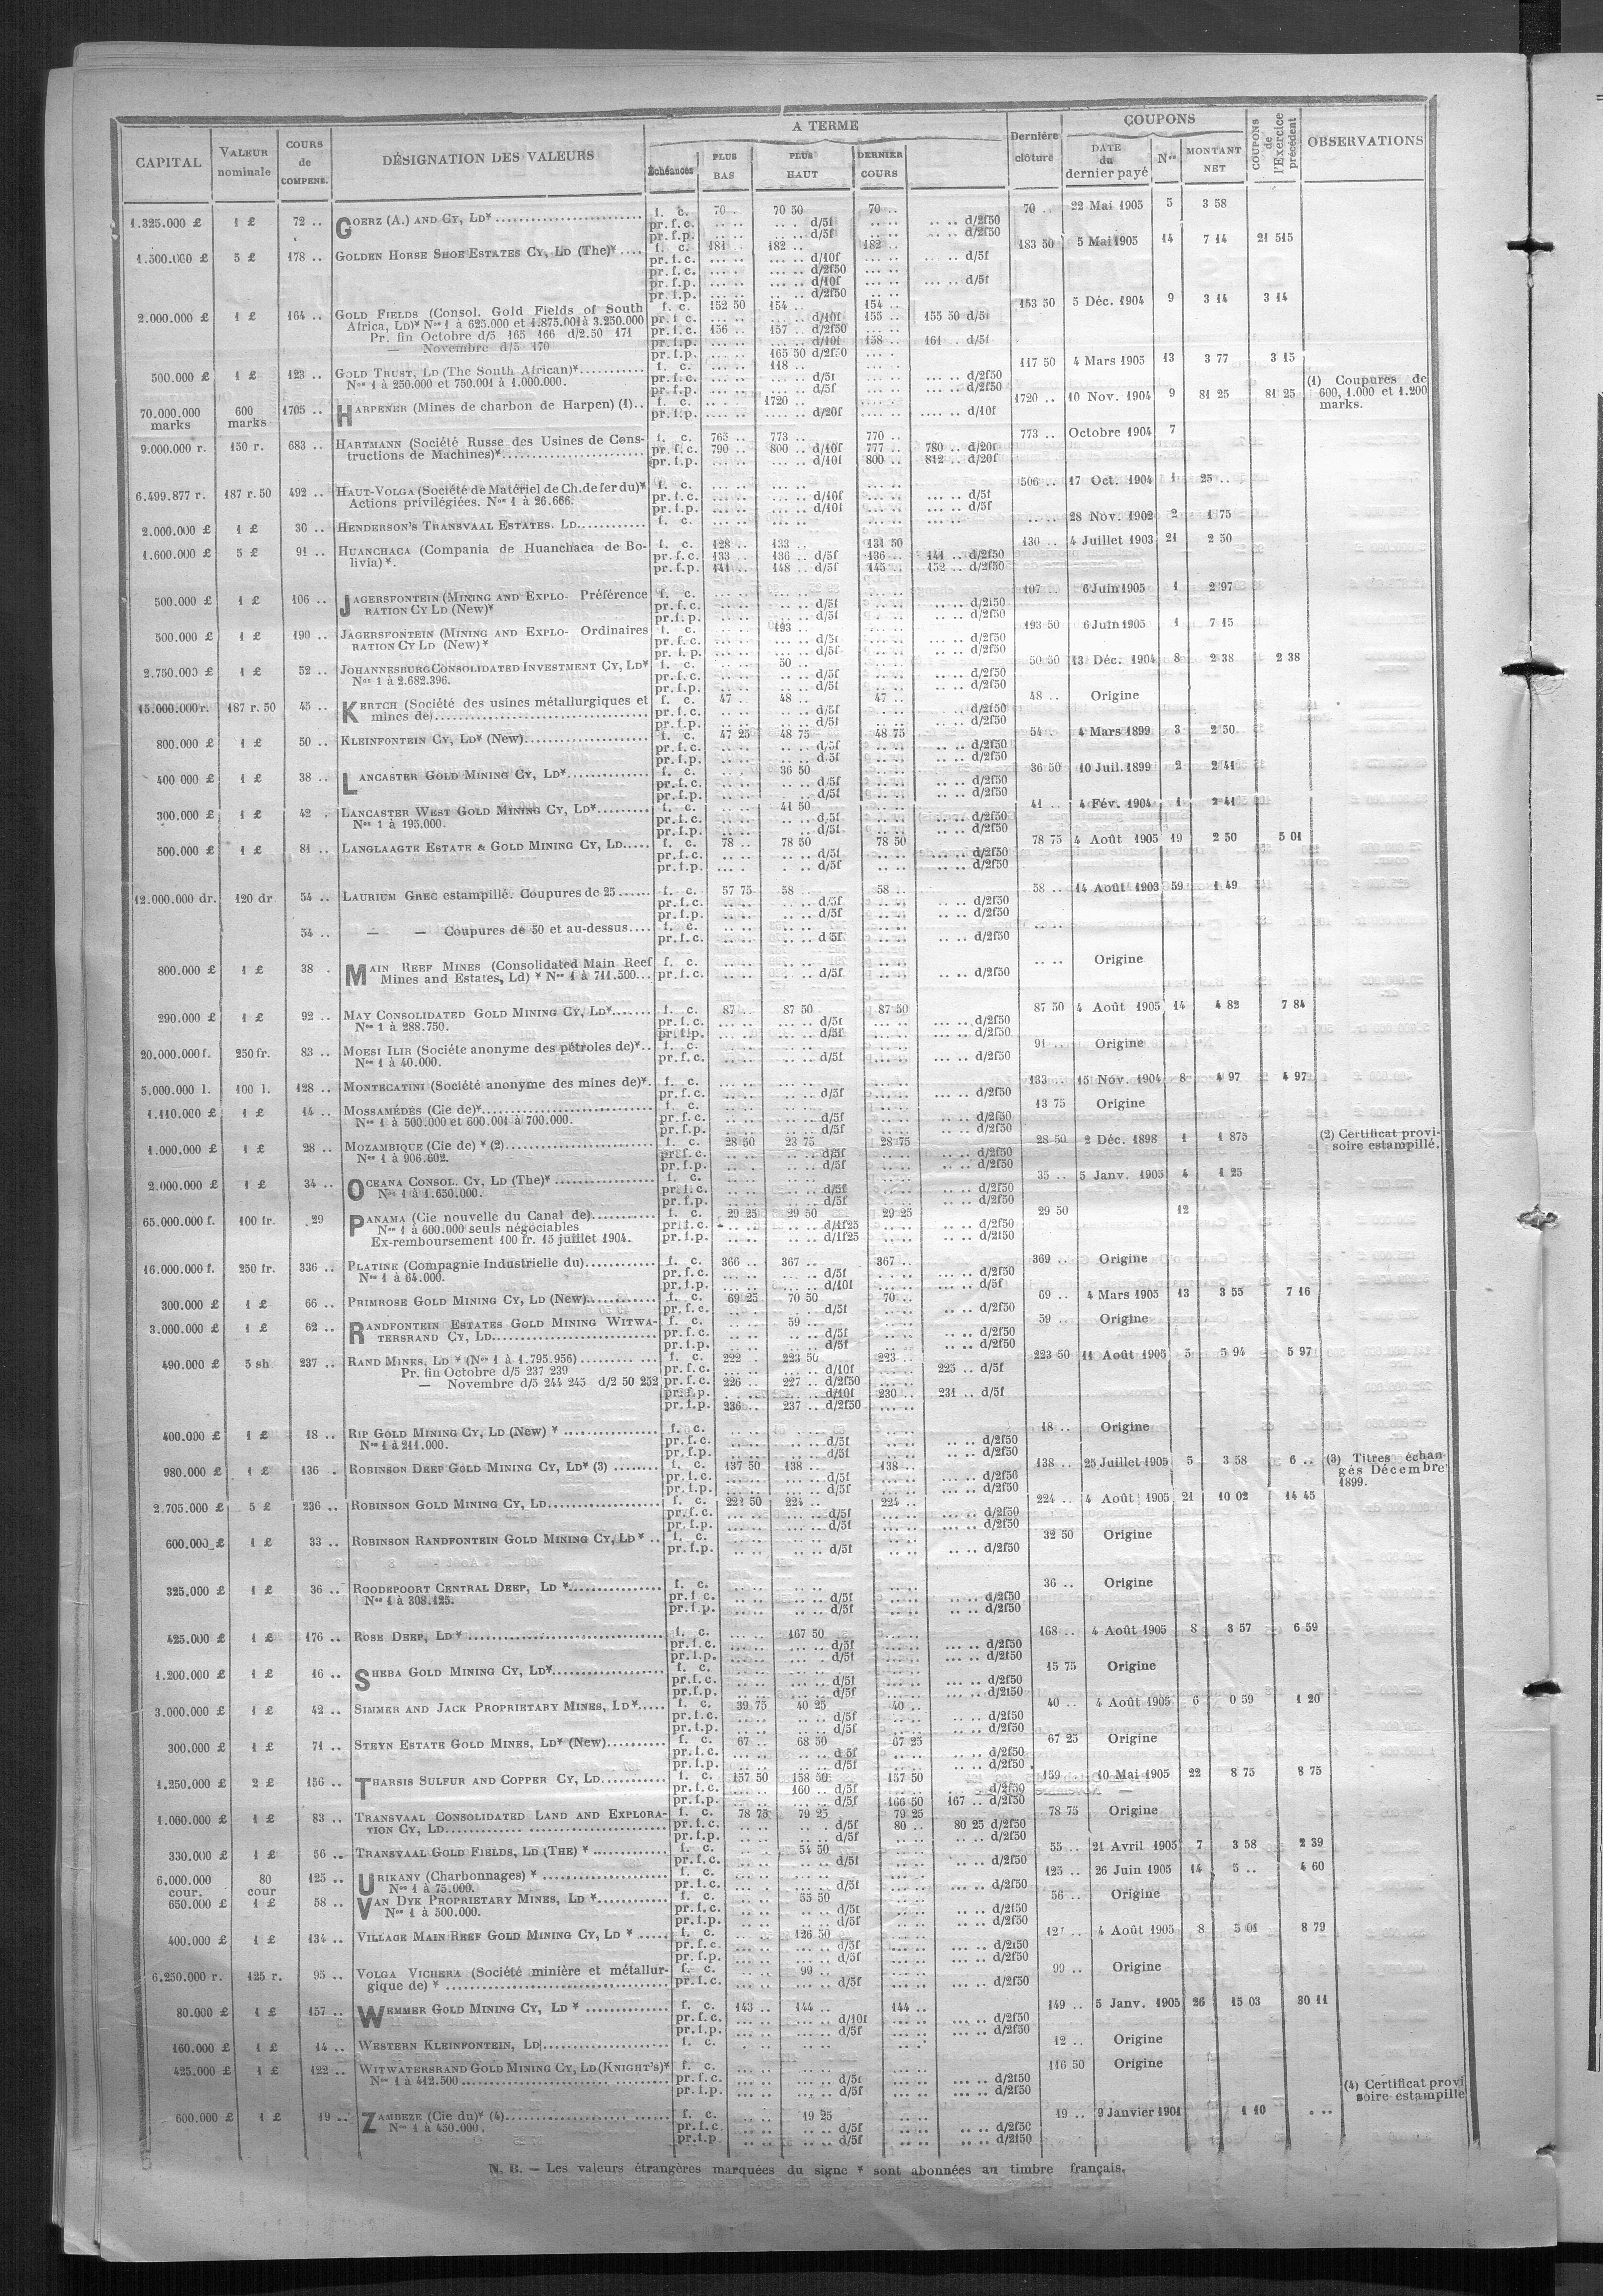 CAPITAL VALEUR nominale COURS de COMPENS. DÉSIGNATION DES VALEURS A TERME Échéances PLUS BAS PLUS HAUT DERNIER COURS Dernière clôture COUPONS DATE du dernier payé Nos MONTANT NET COUPONS de l'Exercice précédent OBSERVATIONS
1.325.000 £ 1 £ 72 .. GOERZ (A.) AND CY, LD* f. c. 70 . 70 50 70 .. 70 .. 22 Mai 1905 5 3 58
pr. f. c. .. .. .. .. d/5f .. .. .. .. d/2f50
pr. f. p. .. .. .. .. d/5f .. .. .. .. d/2f50
1.500.000 £ 5 £ 178 .. GOLDEN HORSE SHOE ESTATES CY, LD (The)* f. c. 181 .. 182 .. 182 .. 183 50 5 Mai 1905 14 7 14 21 515
pr. f. c. ... .. ... .. d/10f ... .. ... .. d/5f
pr. f. c. ... .. ... .. d/2f50 ... ..
pr. f. p. ... .. ... .. d/10f ... .. ... .. d/5f
pr. f. p. ... .. ... .. d/2f50 ... ..
2.000.000 £ 1 £ 164 .. GOLD FIELDS (Consol. Gold Fields of South f. c. 152 50 154 .. 154 .. 153 50 5 Déc. 1904 9 3 14 3 14
Africa, LD)* Nos 1 à 625.000 et 1.875.001 à 3.250.000 pr. f. c. ... .. ... .. d/10f 155 .. 155 50 d/5f
Pr. fin Octobre d/5 165 166 d/2.50 171 pr. f. c. 156 .. 157 .. d/2f50 ... ..
— Novembre d/5 170 pr. f. p. ... .. ... .. d/10f 158 .. 161 .. d/5f
pr. f. p. ... .. 165 50 d/2f50 ... .
500.000 £ 1 £ 123 .. GOLD TRUST, LD (The South African)* f. c. ... .. 118 .. ... .. 117 50 4 Mars 1905 13 3 77 3 15
Nos 1 à 250.000 et 750.001 à 1.000.000. pr. f. c. ... .. ... .. d/5f ... .. ... .. d/2f50
pr. f. p. ... .. ... .. d/5f ... .. ... .. d/2f50
(1) Coupures de 600, 1.000 et 1.200 marks.
70.000.000 marks 600 marks 1705 .. HARPENER (Mines de charbon de Harpen) (1).. f. c. .... .. 1720 .. .... .. 1720 .. 10 Nov. 1904 9 81 25 81 25
pr. f. p. .... .. .... .. d/20f .... .. .... .. d/10f
9.000.000 r. 150 r. 683 .. HARTMANN (Société Russe des Usines de Cons- f. c. 765 .. 773 .. 770 .. 773 .. Octobre 1904 7
tructions de Machines)* pr. f. c. 790 .. 800 .. d/10f 777 .. 780 .. d/20f
pr. f. p. ... .. ... .. d/10f 800 .. 812 .. d/20f
6.499.877 r. 187 r. 50 492 .. HAUT-VOLGA (Société de Matériel de Ch. de fer du)* f. c. ... .. ... .. ... .. 506 .. 17 Oct. 1904 1 25 ..
Actions privilégiées. Nos 1 à 26.666. pr. f. c. ... .. ... .. d/10f ... .. ... .. d/5f
pr. f. p. ... .. ... .. d/10f ... .. ... .. d/5f
2.000.000 £ 1 £ 30 .. HENDERSON'S TRANSVAAL ESTATES. LD f. c. ... .. ... .. ... .. .. .. 28 Nov. 1902 2 1 75
1.600.000 £ 5 £ 91 .. HUANCHACA (Compania de Huanchaca de Bo- f. c. 128 .. 133 .. 131 50 130 .. 4 Juillet 1903 21 2 50
livia)*. pr. f. c. 133 .. 136 .. d/5f 136 .. 141 .. d/2f50
pr. f. p. 141 .. 148 .. d/5f 145 .. 152 .. d/2f50
500.000 £ 1 £ 106 .. JAGERSFONTEIN (MINING AND EXPLO- Préférence f. c. ... .. ... .. ... .. 107 .. 6 Juin 1905 1 2 97
RATION CY LD (New)* pr. f. c. ... .. ... .. d/5f ... .. ... .. d/2f50
pr. f. p. ... .. ... .. d/5f ... .. ... .. d/2f50
500.000 £ 1 £ 190 .. JAGERSFONTEIN (MINING AND EXPLO- Ordinaires f. c. ... .. 193 .. ... .. 193 50 6 Juin 1905 1 7 15
RATION CY LD (New)* pr. f. c. ... .. ... .. d/5f ... .. ... .. d/2f50
pr. f. p. ... .. ... .. d/5f ... .. ... .. d/2f50
2.750.000 £ 1 £ 52 .. JOHANNESBURG CONSOLIDATED INVESTMENT CY, LD* f. c. .. .. 50 .. .. .. 50 50 13 Déc. 1904 8 2 38 2 38
Nos 1 à 2.682.396. pr. f. c. .. .. .. .. d/5f .. .. .. .. d/2f50
pr. f. p. .. .. .. .. d/5f .. .. .. .. d/2f50
15.000.000 r. 187 r. 50 45 .. KERTCH (Société des usines métallurgiques et f. c. 47 .. 48 .. 47 .. 48 .. Origine
mines de) pr. f. c. .. .. .. .. d/5f .. .. .. .. d/2f50
pr. f. p. .. .. .. .. d/5f .. .. .. .. d/2f50
800.000 £ 1 £ 50 .. KLEINFONTEIN CY, LD* (New) f. c. 47 25 48 75 48 75 54 . 4 Mars 1899 3 2 50
pr. f. c. .. .. .. .. d/5f .. .. .. .. d/2f50
pr. f. p. .. .. .. .. d 5f .. .. .. .. d/2f50
400 000 £ 1 £ 38 .. LANCASTER GOLD MINING CY, LD* f. c. .. .. 36 50 .. .. 36 50 10 Juil. 1899 2 2 41
pr. f. c. .. .. .. .. d/5f .. .. .. .. d/2f50
pr. f. p. .. .. .. .. d/5f .. .. .. .. d/2f50
300.000 £ 1 £ 42 . LANCASTER WEST GOLD MINING CY, LD* f. c. .. .. 41 50 .. .. 41 .. 4 Fév. 1904 1 2 41
Nos 1 à 195.000. pr. f. c. .. .. .. .. d/5f .. .. .. .. d/2f50
pr. f. p. .. .. .. .. d/5f .. .. .. .. d/2f50
500.000 £ 1 £ 81 .. LANGLAAGTE ESTATE & GOLD MINING CY, LD f. c. 78 .. 78 50 78 50 78 75 4 Août 1905 19 2 50 5 01
pr. f. c. .. .. .. .. d/5f .. .. ... .. d/2f50
pr. f. p. .. .. .. .. d/5f .. .. .. .. d/2f50
12.000.000 dr. 120 dr 54 .. LAURIUM GREC estampillé. Coupures de 25 f. c. 57 75 58 .. 58 .. 58 .. 14 Août 1903 59 1 49
pr. f. c. .. .. .. .. d/5f .. .. .. .. d/2f50
pr. f. p. .. .. .. .. d/5f .. .. .. .. d/2f50
54 .. — — Coupures de 50 et au-dessus f. c. .. .. .. .. .. .. .. ..
pr. f. c. .. .. .. .. d 5f .. .. .. .. d/2f50
800.000 £ 1 £ 38 . MAIN REEF MINES (Consolidated Main Reef f. c. .. .. .. .. .. .. .. .. Origine
Mines and Estates, Ld)* Nos 1 à 711.500 pr. f. c. .. .. .. .. d/5f .. .. .. .. d/2f50
290.000 £ 1 £ 92 .. MAY CONSOLIDATED GOLD MINING CY, LD* f. c. 87 .. 87 50 87 50 87 50 4 Août 1905 14 4 82 7 84
Nos 1 à 288.750. pr. f. c. ... .. ... .. d/5f ... .. ... .. d/2f50
pr. f. p. ... .. ... .. d/5f ... .. ... .. d/2f50
20.000.000 f. 250 fr. 83 .. MOESI ILIR (Sociéte anonyme des pétroles de)* f. c. ... .. ... .. ... .. 91 .. Origine
Nos 1 à 40.000. pr. f. c. ... .. ... .. d/5f ... .. .. .. d/2f50
5.000.000 l. 100 l. 128 .. MONTECATINI (Société anonyme des mines de)* f. c. ... .. ... .. ... .. 133 .. 15 Nov. 1904 8 4 97 4 97
pr. f. c. ... .. ... .. d/5f ... .. ... .. d/2f50
1.110.000 £ 1 £ 14 .. MOSSAMÉDÈS (Cie de)* f. c. .. .. .. .. .. .. 13 75 Origine
Nos 1 à 500.000 et 600.001 à 700.000. pr. f. c. .. .. .. .. d/5f .. .. .. .. d/2f50
pr. f. p. .. .. .. .. d/5f .. .. .. .. d/2f50
1.000.000 £ 1 £ 28 .. MOZAMBIQUE (Cie de)* (2) f. c. 28 50 23 75 28 75 28 50 2 Déc. 1898 1 1 875 (2) Certificat provi-
Nos 1 à 906.602. pr. f. c. .. .. .. .. d/5f .. .. .. .. d/2f50 soire estampillé.
pr. f. p. .. .. .. .. d/5f .. .. .. .. d/2f50
2.000.000 £ 1 £ 34 .. OCEANA CONSOL. CY, LD (The)* f. c. .. .. .. .. .. .. 35 .. 5 Janv. 1905 4 1 25
Nos 1 à 1.650.000. pr. f. c. .. .. .. .. d/5f .. .. .. .. d/2f50
pr. f. p. .. .. .. .. d/5f .. .. .. .. d/2f50
65.000.000 f. 100 fr. 29 PANAMA (Cie nouvelle du Canal de) f. c. 29 25 29 50 29 25 29 50 12
Nos 1 à 600.000 seuls négociables pr. f. c. .. .. .. .. d/1f25 .. .. .. .. d/2f50
Ex-remboursement 100 fr. 15 juillet 1904. pr. f. p. .. .. .. .. d/1f25 .. .. .. .. d/2f50
16.000.000 f. 250 fr. 336 .. PLATINE (Compagnie Industrielle du) f. c. 366 .. 367 .. 367 .. 369 .. Origine
Nos 1 à 64.000. pr. f. c. ... .. ... .. d/5f ... .. ... .. d/2f50
pr. f. p. ... .. ... .. d/10f ... .. ... .. d/5f
300.000 £ 1 £ 66 .. PRIMROSE GOLD MINING CY, LD (New) f. c. 69 25 70 50 70 .. 69 .. 4 Mars 1905 13 3 55 7 16
pr. f. c. .. .. .. .. d/5f .. .. .. .. d/2f50
3.000.000 £ 1 £ 62 .. RANDFONTEIN ESTATES GOLD MINING WITWA- f. c. .. .. 59 .. .. .. 59 .. Origine
TERSRAND CY, LD pr. f. c. .. .. .. .. d/5f .. .. .. .. d/2f50
pr. f. p. .. .. .. .. d/5f .. .. .. .. d/2f50
490.000 £ 5 sh 237 .. RAND MINES, LD* (Nos 1 à 1.795.956) f. c. 222 . 223 50 223 .. 223 50 11 Août 1905 5 5 94 5 97
Pr. fin Octobre d/5 237 239 pr. f. c. ... .. ... .. d/10f ... .. 225 .. d/5f
— Novembre d/5 244 245 d/2 50 252 pr. f. c. 226 .. 227 .. d/2f50 ... ..
pr. f. p. ... .. ... .. d/10f 230 .. 231 .. d/5f
pr. f. p. 236 .. 237 .. d/2f50 ... ..
400.000 £ 1 £ 18 .. RIP GOLD MINING CY, LD (New)* f. c. .. .. .. .. .. .. 18 .. Origine
Nos 1 à 211.000. pr. f. c. .. .. .. .. d/5f .. .. .. .. d/2f50
pr. f. p. .. .. .. .. d/5f .. .. .. .. d/2f50
980.000 £ 1 £ 136 . ROBINSON DEEP GOLD MINING CY, LD* (3) f. c. 137 50 138 .. 138 .. 138 .. 25 Juillet 1905 5 3 58 6 .. (3) Titres échan-
pr. f. c. ... .. ... .. d/5f ... .. ... .. d/2f50 gés Décembre
pr. f. p. ... .. ... .. d/5f ... .. ... .. d/2f50 1899.
2.705.000 £ 5 £ 236 .. ROBINSON GOLD MINING CY, LD f. c. 222 50 224 .. 224 .. 224 .. 4 Août 1905 21 10 02 14 45
pr. f. c. ... .. ... .. d/5f ... .. ... .. d/2f50
pr. f. p. ... .. ... .. d/5f ... .. ... .. d/2f50
600.000 £ 1 £ 33 .. ROBINSON RANDFONTEIN GOLD MINING CY, LD* f. c. .. .. .. .. .. .. 32 50 Origine
pr. f. p. .. .. .. .. d/5f .. .. .. .. d/2f50
325.000 £ 1 £ 36 .. ROODEPOORT CENTRAL DEEP, LD* f. c. .. .. .. .. .. .. 36 .. Origine
Nos 1 à 308.125. pr. f. c. .. .. .. .. d/5f .. .. .. .. d/2f50
pr. f. p. .. .. .. .. d/5f .. .. .. .. d/2f50
425.000 £ 1 £ 176 .. ROSE DEEP, LD* f. c. ... .. 167 50 ... .. 168 .. 4 Août 1905 8 3 57 6 59
pr. f. c. ... .. ... .. d/5f ... .. ... .. d/2f50
pr. f. p. ... .. ... .. d/5f ... .. ... .. d/2f50
1.200.000 £ 1 £ 16 .. SHEBA GOLD MINING CY, LD* f. c. .. .. .. .. .. .. 15 75 Origine
pr. f. c. .. .. .. .. d/5f .. .. ... .. d/2f50
pr. f. p. .. .. .. .. d/5f .. .. ... .. d/2f50
3.000.000 £ 1 £ 42 .. SIMMER AND JACK PROPRIETARY MINES, LD* f. c. 39 75 40 25 40 .. 40 .. 4 Août 1905 6 0 59 1 20
pr. f. c. .. .. .. .. d/5f .. .. .. .. d/2f50
pr. f. p. .. .. .. .. d/5f .. .. .. .. d/2f50
300.000 £ 1 £ 71 .. STEYN ESTATE GOLD MINES, LD* (New) f. c. 67 .. 68 50 67 25 67 25 Origine
pr. f. c. .. .. .. .. d 5f .. .. .. .. d/2f50
pr. f. p. .. .. .. .. d/5f .. .. .. .. d/2f50
1.250.000 £ 2 £ 156 .. THARSIS SULFUR AND COPPER CY, LD f. c. 157 50 158 50 157 50 159 .. 10 Mai 1905 22 8 75 8 75
pr. f. c. ... .. 160 .. d/5f ... .. ... .. d/2f50
pr. f. p. ... .. ... .. d/5f 166 50 167 .. d/2f50
1.000.000 £ 1 £ 83 .. TRANSVAAL CONSOLIDATED LAND AND EXPLORA- f. c. 78 75 79 25 79 25 78 75 Origine
TION CY, LD pr. f. c. .. .. .. .. d/5f 80 .. 80 25 d/2f50
pr. f. p. .. .. .. .. d/5f .. .. .. .. d/2f50
330.000 £ 1 £ 56 .. TRANSVAAL GOLD FIELDS, LD (THE)* f. c. .. .. 54 50 .. .. 55 .. 21 Avril 1905 7 3 58 2 39
pr. f. c. .. .. .. .. d/5f .. .. .. .. d/2f50
6.000.000 cour. 80 cour 125 .. URIKANY (Charbonnages)* f. c. ... .. ... .. ... .. 125 .. 26 Juin 1905 14 5 .. 4 60
Nos 1 à 75.000. pr. f. c. ... .. ... .. d/5f ... .. ... .. d/2f50
650.000 £ 1 £ 58 .. VAN DYK PROPRIETARY MINES, LD* f. c. .. .. 55 50 .. .. 56 .. Origine
Nos 1 à 500.000. pr. f. c. .. .. .. .. d/5f .. .. .. .. d/2f50
pr. f. p. .. .. .. .. d/5f .. .. .. .. d/2f50
400.000 £ 1 £ 134 .. VILLAGE MAIN REEF GOLD MINING CY, LD* f. c. ... .. 126 50 ... .. 4 Août 1905 8 5 01 8 79
pr. f. c. ... .. ... .. d/5f ... .. ... .. d/2f50
pr. f. p. ... .. ... .. d/5f ... .. ... .. d/2f50
6.250.000 r. 125 r. 95 .. VOLGA VICHERA (Société minière et métallur- f. c. ... .. 99 .. ... .. 99 .. Origine
gique de)* pr. f. c. ... .. ... .. d/5f ... .. ... .. d/2f50
80.000 £ 1 £ 157 .. WEMMER GOLD MINING CY, LD* f. c. 143 .. 144 .. 144 .. 149 .. 5 Janv. 1905 26 15 03 30 11
pr. f. c. ... .. ... .. d/10f ... .. ... .. d/2f50
pr. f. p. ... .. ... .. d/5f ... .. ... .. d/2f50
160.000 £ 1 £ 14 .. WESTERN KLEINFONTEIN, LD f. c. .. .. .. .. .. .. 12 .. Origine
425.000 £ 1 £ 122 .. WITWATERSRAND GOLD MINING CY, LD (KNIGHT'S)* f. c. ... .. ... .. ... .. 116 50 Origine
Nos 1 à 412.500 pr. f. c. ... .. ... .. d/5f ... .. ... .. d/2f50
pr. f. p. ... .. ... .. d/5f ... .. ... .. d/2f50
(4) Certificat provi
soire estampille
600.000 £ 1 £ 19 .. ZAMBEZE (Cie du)* (4) f. c. .. .. 19 25 .. .. 19 .. 9 Janvier 1901 1 10 . ..
Nos 1 à 450.000. pr. f. c. .. .. .. .. d/5f .. .. .. .. d/2f50
pr. f. p. .. .. .. .. d/5f .. .. .. .. d/2f50
N. B. — Les valeurs étrangères marquées du signe * sont abonnées au timbre français.